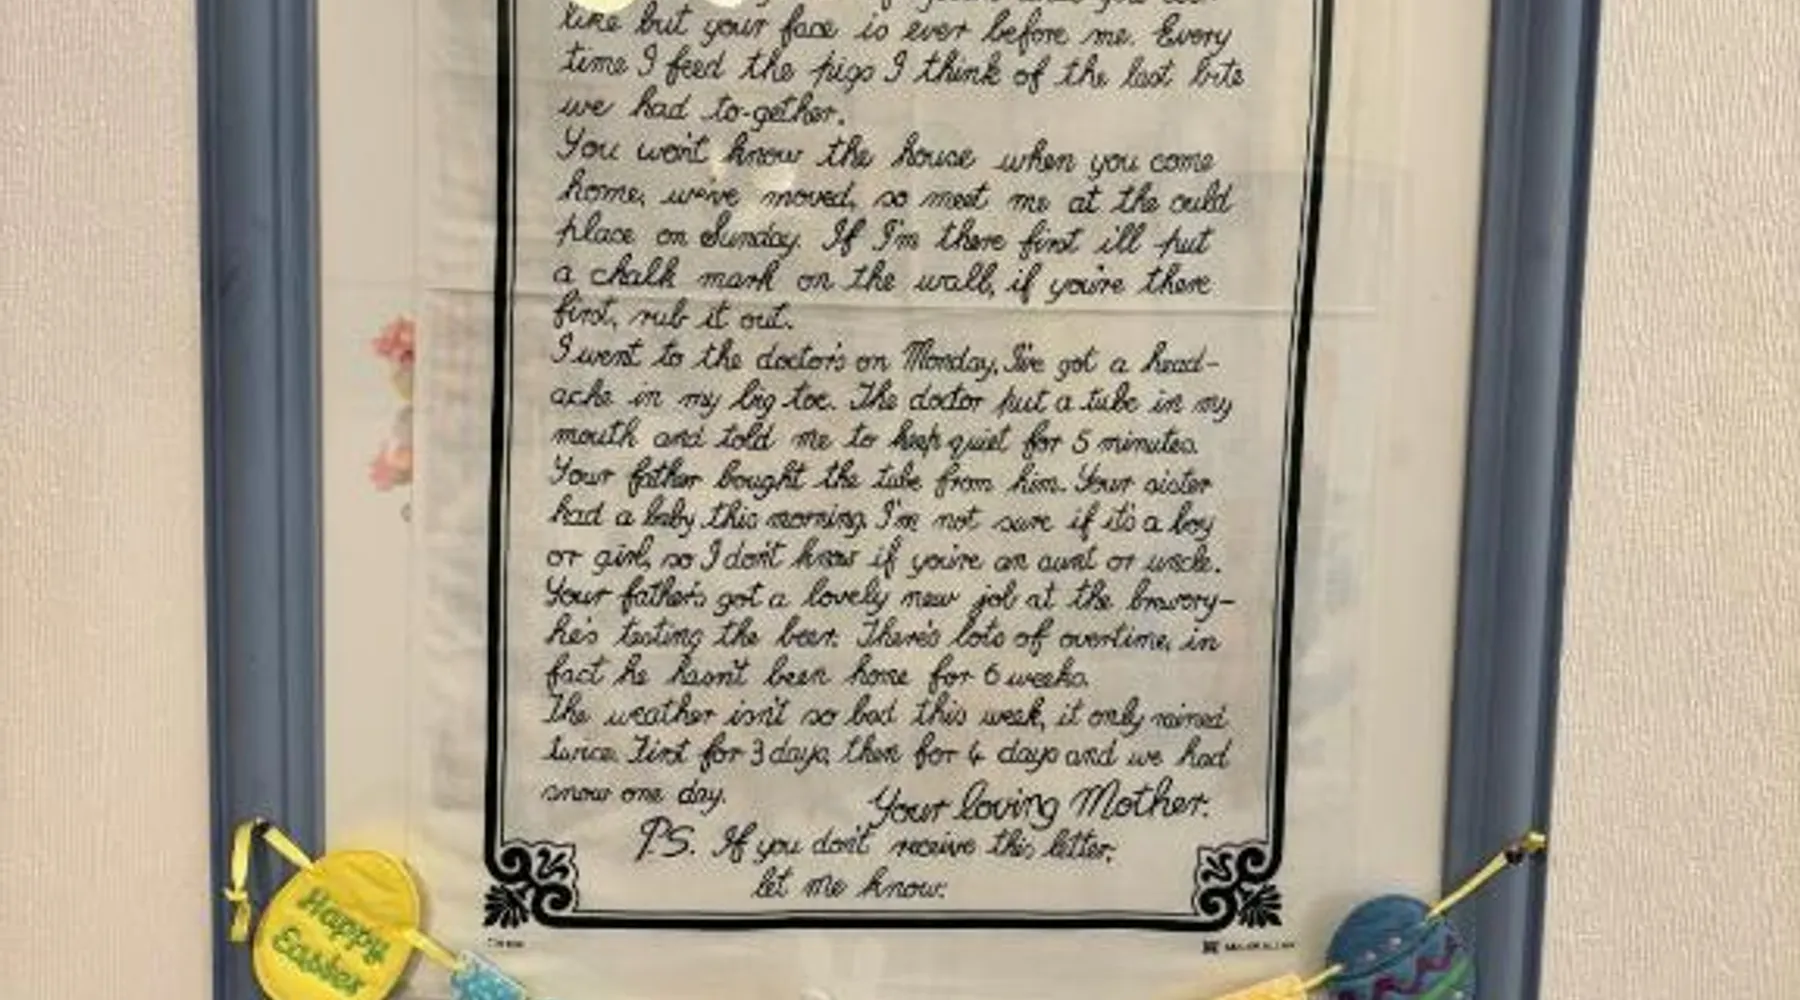 like but your face is ever before me. Every
time I feed the pigs I think of the last bite
we had to-gether.
You won't know the house when you come
home, we've moved, so meet me at the ould
place on Sunday. If I'm there first i'll put
a chalk mark on the wall, if you're there
first, rub it out.
I went to the doctor's on Monday, I've got a head-
ache in my big toe. The doctor put a tube in my
mouth and told me to keep quiet for 5 minutes.
Your father bought the tube from him. Your sister
had a baby this morning, I'm not sure if it's a boy
or girl, so I don't know if you're an aunt or uncle.
Your father's got a lovely new job at the brewery-
he's testing the beer. There's lots of overtime, in
fact he hasn't been home for 6 weeks.
The weather isn't so bad this week, it only rained
twice. First for 3 days, then for 4 days and we had
snow one day.
Your loving Mother.
P.S. If you don't receive this letter,
let me know.
Happy
Easter